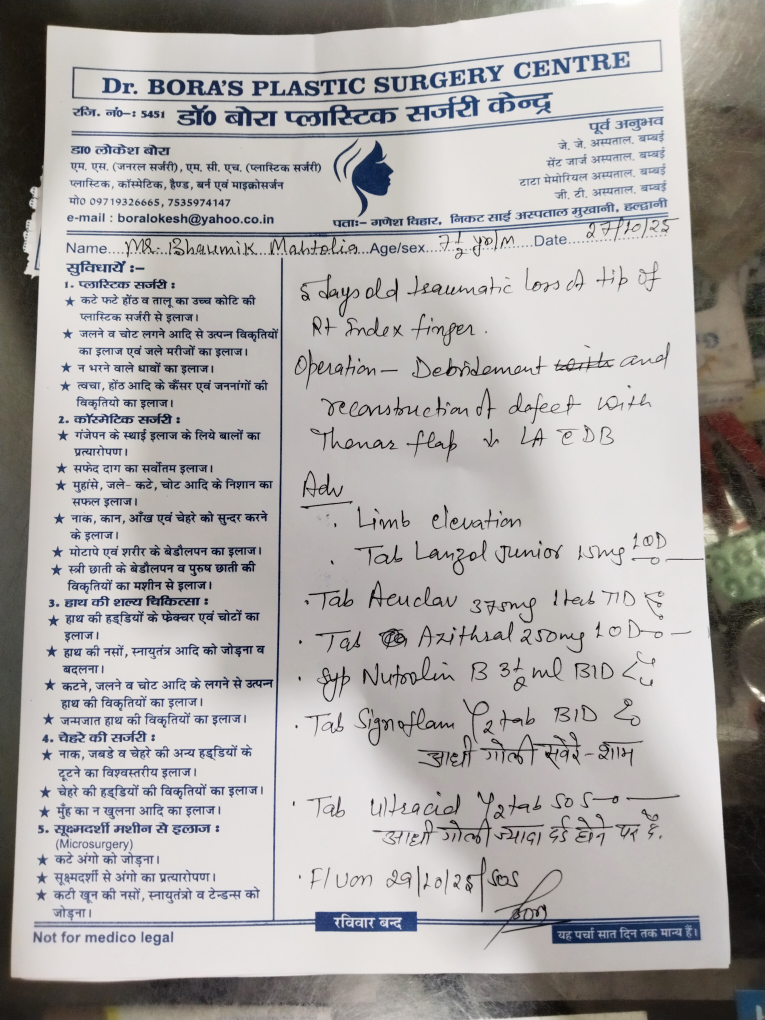 Dr. BORA'S PLASTIC SURGERY CENTRE
रजि. नं०-: 5451 डॉ० बोरा प्लास्टिक सर्जरी केन्द्र
डा० लोकेश बोरा
एम. एस. (जनरल सर्जरी), एम. सी. एच. (प्लास्टिक सर्जरी)
प्लास्टिक, कॉस्मेटिक, हैण्ड, बर्न एवं माइक्रोसर्जन
मो० 09719326665, 7535974147
e-mail : boralokesh@yahoo.co.in
पूर्व अनुभव
जे. जे. अस्पताल. बम्बई
सेंट जार्ज अस्पताल. बम्बई
टाटा मेमोरियल अस्पताल. बम्बई
जी. टी. अस्पताल. बम्बई
पताः- गणेश विहार, निकट साई अस्पताल मुखानी, हल्द्वानी
Name Mr. Bhaumik Mahtolia Age/sex 7 1/2 yr/M Date 27/10/25
सुविधायें :-
1. प्लास्टिक सर्जरी :
★ कटे फटे होंठ व तालू का उच्च कोटि की
प्लास्टिक सर्जरी से इलाज।
★ जलने व चोट लगने आदि से उत्पन्न विकृतियों
का इलाज एवं जले मरीजों का इलाज।
★ न भरने वाले घावों का इलाज।
★ त्वचा, होंठ आदि के कैंसर एवं जननांगों की
विकृतियो का इलाज।
2. कॉस्मेटिक सर्जरी :
★ गंजेपन के स्थाई इलाज के लिये बालों का
प्रत्यारोपण।
★ सफेद दाग का सर्वोतम इलाज।
★ मुहांसे, जले- कटे, चोट आदि के निशान का
सफल इलाज।
★ नाक, कान, आँख एवं चेहरे को सुन्दर करने
के इलाज।
★ मोटापे एवं शरीर के बेडौलपन का इलाज।
★ स्त्री छाती के बेडौलपन व पुरुष छाती की
विकृतियों का मशीन से इलाज।
3. हाथ की शल्य चिकित्सा :
★ हाथ की हड्डियों के फ्रेक्चर एवं चोटों का
इलाज।
★ हाथ की नसों, स्नायुतंत्र आदि को जोड़ना व
बदलना।
★ कटने, जलने व चोट आदि के लगने से उत्पन्न
हाथ की विकृतियों का इलाज।
★ जन्मजात हाथ की विकृतियों का इलाज।
4. चेहरे की सर्जरी :
★ नाक, जबडे व चेहरे की अन्य हड्डियों के
टूटने का विश्वस्तरीय इलाज।
★ चेहरे की हड्डियों की विकृतियों का इलाज।
★ मुँह का न खुलना आदि का इलाज।
5. सूक्ष्मदर्शी मशीन से इलाज :
(Microsurgery)
★ कटे अंगो को जोड़ना।
★ सूक्ष्मदर्शी से अंगो का प्रत्यारोपण।
★ कटी खून की नसों, स्नायुतंत्रो व टेन्डन्स को
जोड़ना।
5 days old traumatic loss of tip of
Rt Index finger.
Operation - Debridement with and
reconstruction of defect with
Thenar flap ↓ LA c̄ DB
Adv
. Limb elevation
. Tab Lanzol Junior 15mg 1OD
. Tab Acuclav 375mg 1tab TID
. Tab Azithral 250mg 1OD
. Syp Nutrolin B 3 1/2 ml BID
. Tab Signoflam 1/2 tab BID
आधी गोली सवेरे-शाम
. Tab Ultracid 1/2 tab SOS
आधी गोली ज्यादा दर्द होने पर दें.
. F/U on 29/10/25/SOS
रविवार बन्द
Not for medico legal
यह पर्चा सात दिन तक मान्य हैं।